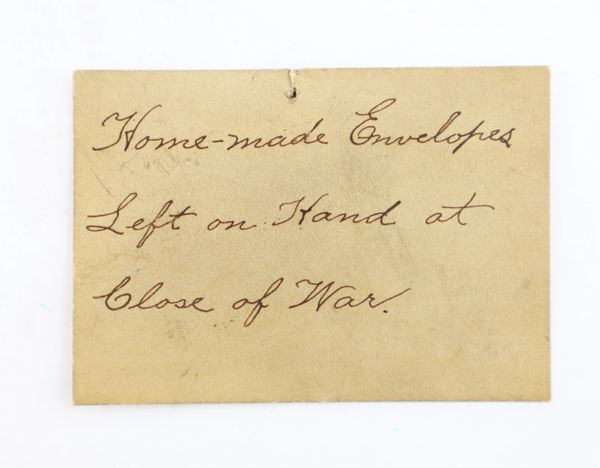 Home-made Envelopes
Left on Hand at
Close of War.